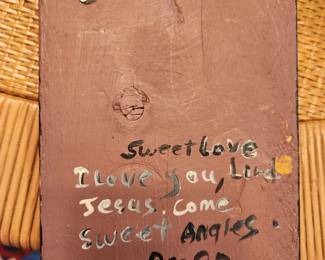 Sweet Love
I love you, Lord
Jesus. Come
Sweet Angles.